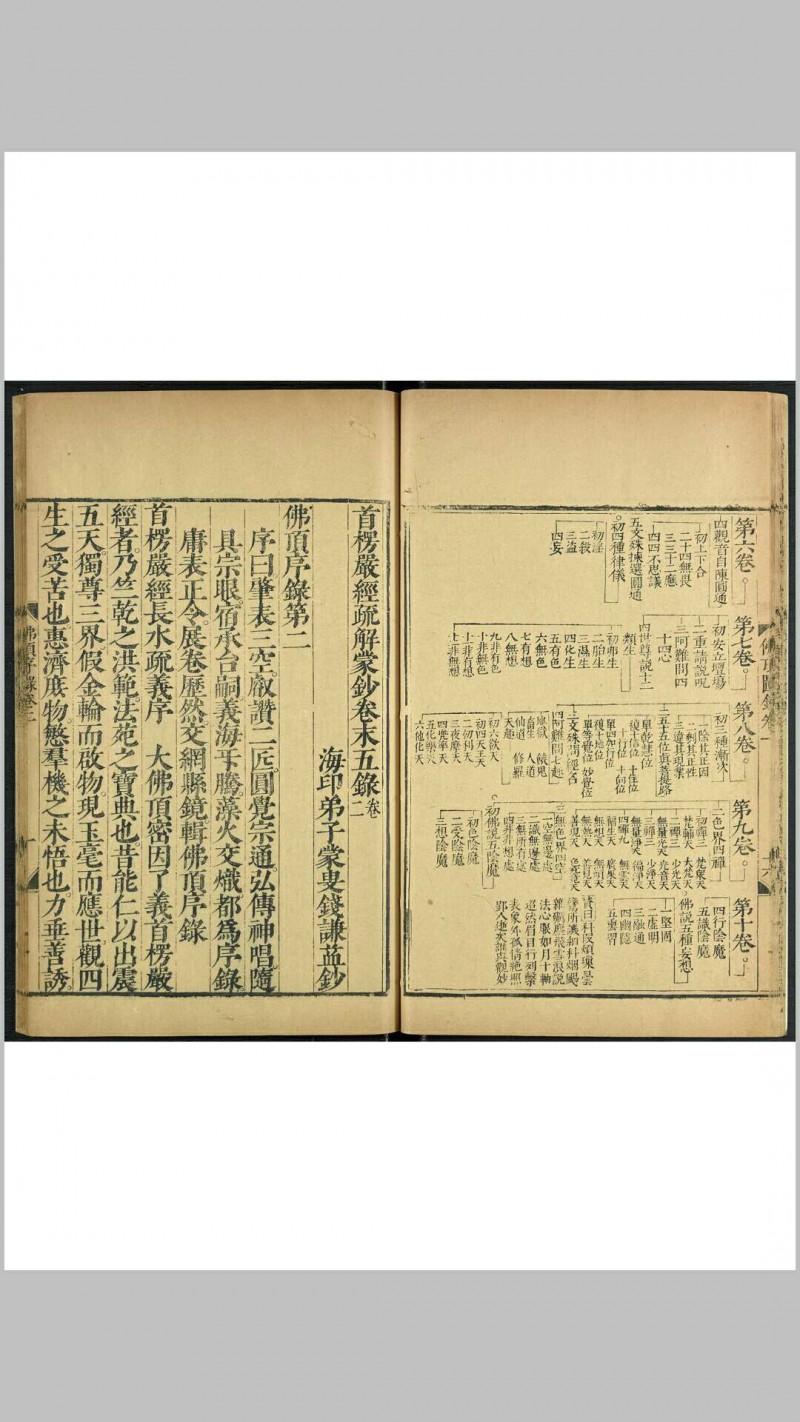 第六卷。
四觀音自陳圓通
初上下合
二十四無畏
三三十二應
四四不思議
五文殊揀選圓通
初四種律儀
初淫
二殺
三盜
四妄
第七卷。
初安立壇場
二重請說呪
三阿難問四
四世尊說十二
類生
初卵生
二胎生
三濕生
四化生
五有色
六無色
七有想
八無想
九非有色
十非無色
十一非有想
十二非無想
第八卷。
初三種漸次
一除其正因
二刳其正性
三違其現業
二五十五位真菩提路
單乾慧位
複十信位 十住位
十行位 十向位
單四加行位
複十地位
單等覺位 妙覺位
三文殊問經名
四阿難問七趣
地獄 餓鬼
畜生 人道
仙道 修羅
天趣
初六欲天
初四天王天
二忉利天
三夜摩天
四兜率天
五化樂天
六他化天
第九卷。
二色界四禪
初禪三 梵衆天
梵輔天 大梵天
二禪三 少光天
無量光天 光音天
三禪三 少淨天
無量淨天 徧淨天
四禪九 無雲天
福生天 廣果天
無想天 無煩天
無熱天 善見天
善現天 色究竟天
三無色界四空
一空無邊處
二識無邊處
三無所有處
四非非想處
初佛說五陰魔
初色陰魔
二受陰魔
三想陰魔
第十卷。
四行陰魔
五識陰魔
佛說五種妄想
一堅固
二虛明
三融通
四幽隱
法心眼如月十軸
表象外孤情絶照
首楞嚴經疏解蒙鈔卷末五錄卷二
海印弟子蒙叟錢謙益鈔
佛頂序錄第二
序曰肇表三空叡讚二匠圓覺宗通弘傳神唱隨
具宗眼宿承台嗣義海平騰藻火交熾都爲序錄
庸表正令展卷歷然交網縣鏡輯佛頂序錄
首楞嚴經長水疏義序 大佛頂密因了義首楞嚴
經者乃竺乾之洪範法苑之寶典也昔能仁以出震
五天獨尊三界假金輪而啟物現玉毫而應世觀四
生之受苦也惠濟庶物愍羣機之未悟也力垂善誘
佛頂序錄卷二